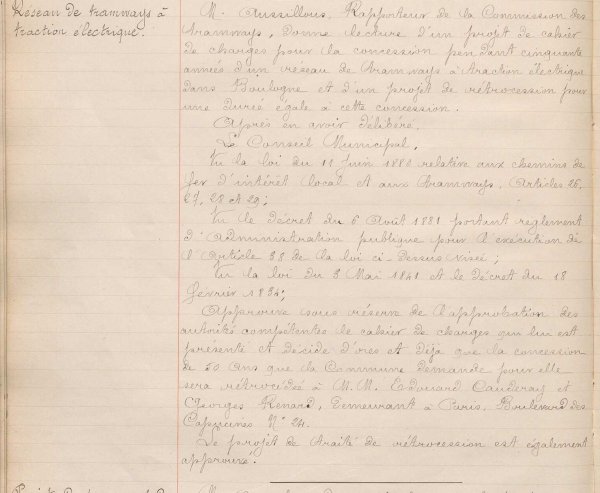 Réseau de tramways à
traction électrique.
M. Aussillous, Rapporteur de la Commission des
tramways, donne lecture d'un projet de cahier
de charges pour la concession pendant cinquante
années d'un réseau de tramways à traction électrique
dans Boulogne et d'un projet de rétrocession pour
une durée égale à cette concession.
Après en avoir délibéré,
Le Conseil Municipal,
Vu la loi du 11 Juin 1880 relative aux chemins de
fer d'intérêt local et aux tramways, Articles 26,
27, 28 et 29;
Vu le décret du 6 Août 1881 portant règlement
d'administration publique pour l'exécution de
l'Article 38 de la loi ci-dessus visée;
Vu la loi du 3 Mai 1841 et le Décret du 18
février 1834;
Approuve sous réserve de l'approbation des
autorité compétentes le cahier de charges qui lui est
présenté et décide d'ores et déjà que la concession
de 50 ans que la Commune demande pour elle
sera rétrocédée à M.M. Edouard Cauderay et
Georges Renard, demeurant à Paris, Boulevard des
Capucines N° 24.
Le projet de traité de rétrocession est également
approuvé.